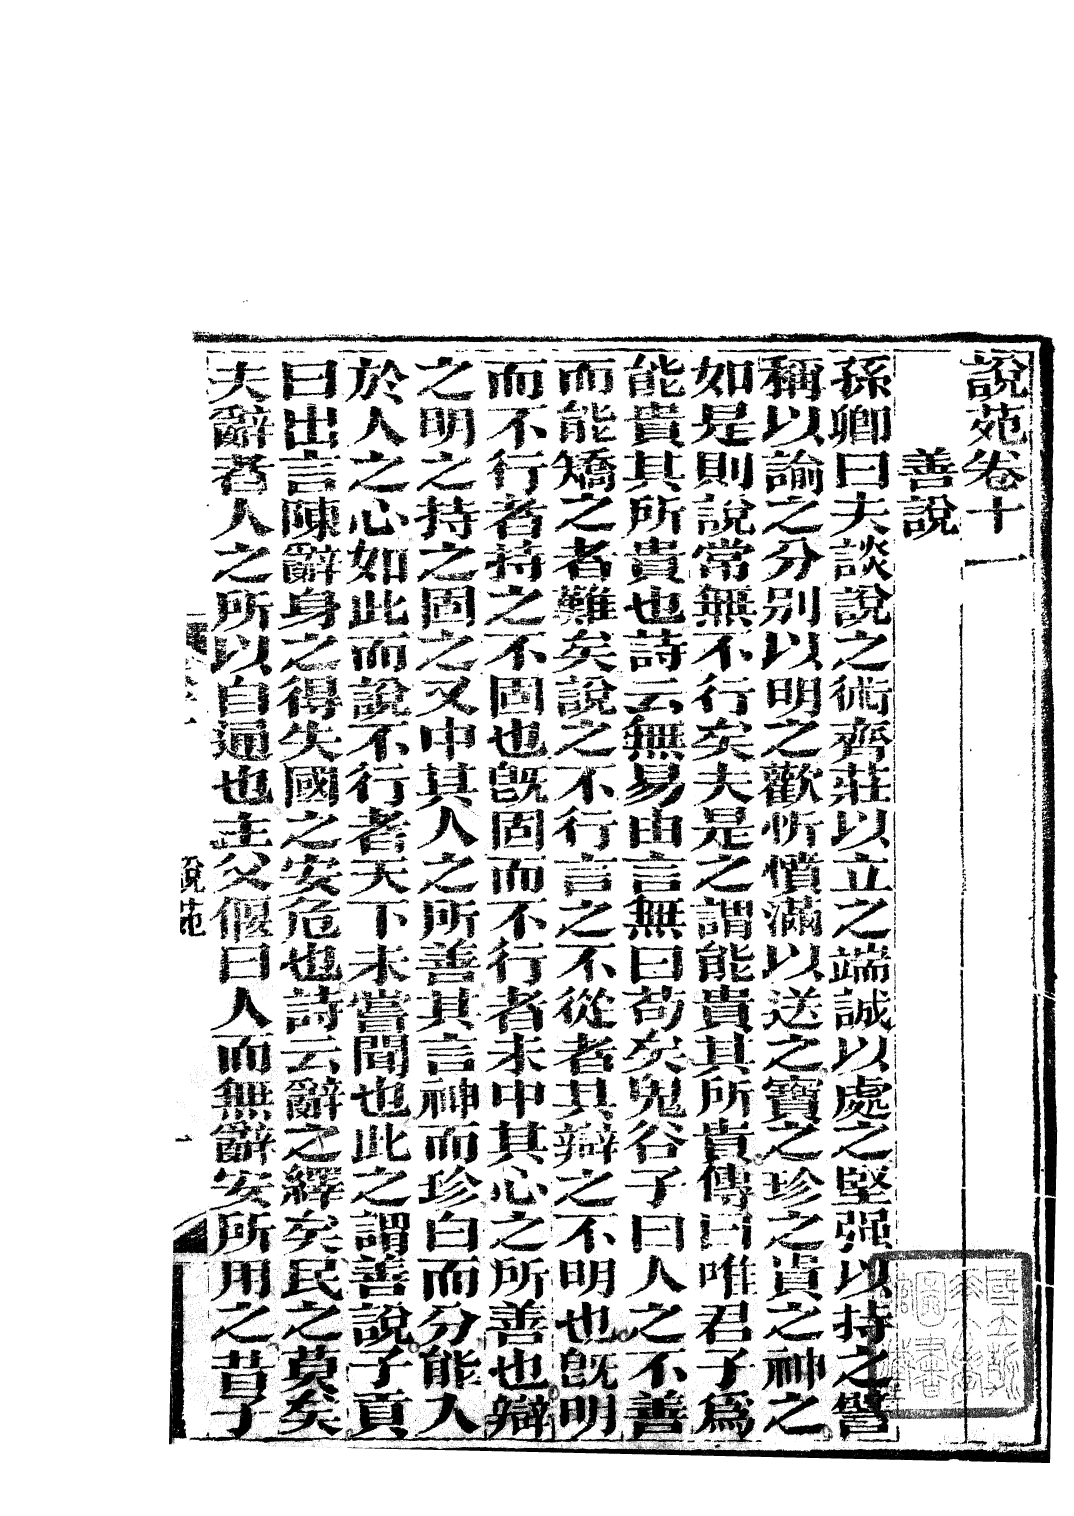 說苑卷十一
善說
孫卿曰夫談說之術齊莊以立之端誠以處之堅强以持之譬
稱以諭之分別以明之歡忻憤滿以送之寶之珍之貴之神之
如是則說常無不行矣夫是之謂能貴其所貴傳曰唯君子爲
能貴其所貴也詩云無易由言無曰苟矣鬼谷子曰人之不善
而能矯之者難矣說之不行言之不從者其辯之不明也旣明
而不行者持之不固也旣固而不行者未中其心之所善也辯
之明之持之固之又中其人之所善其言神而珍白而分能入
於人之心如此而說不行者天下未嘗聞也此之謂善說子貢
曰出言陳辭身之得失國之安危也詩云辭之繹矣民之莫矣
夫辭者人之所以自通也主父偃曰人而無辭安所用之昔子
說苑
一